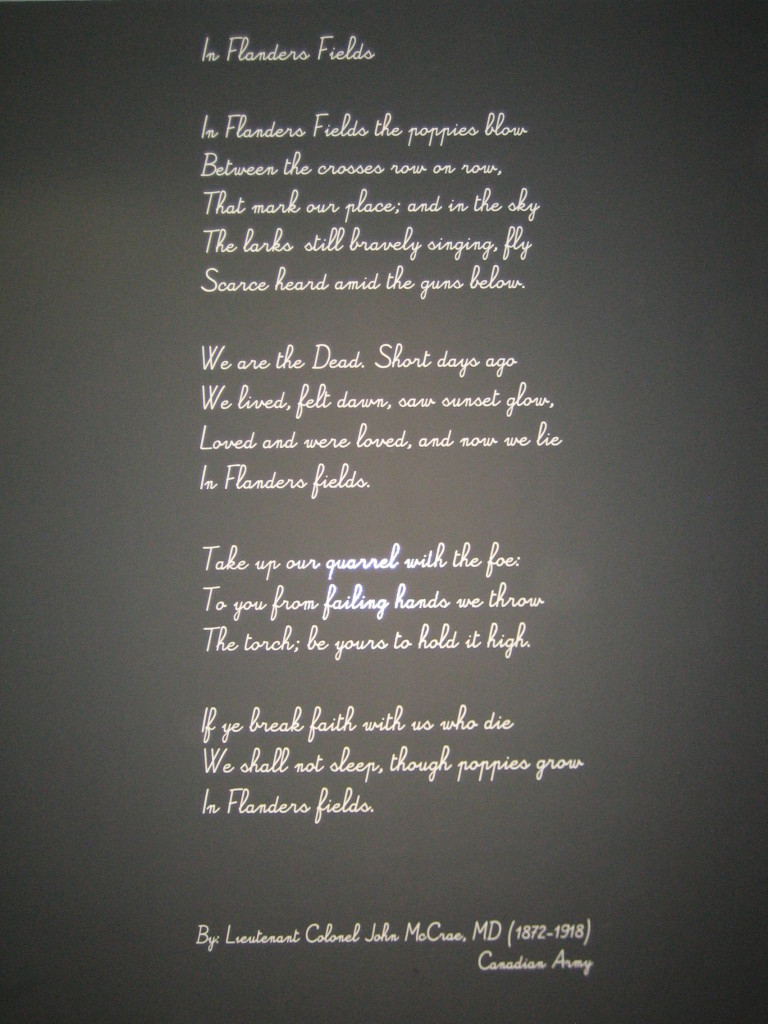 In Flanders Fields
In Flanders Fields the poppies blow
Between the crosses row on row,
That mark our place; and in the sky
The larks still bravely singing, fly
Scarce heard amid the guns below.
We are the Dead. Short days ago
We lived, felt dawn, saw sunset glow,
Loved and were loved, and now we lie
In Flanders fields.
Take up our quarrel with the foe:
To you from failing hands we throw
The torch; be yours to hold it high.
If ye break faith with us who die
We shall not sleep, though poppies grow
In Flanders fields.
By: Lieutenant Colonel John McCrae, MD (1872-1918)
Canadian Army